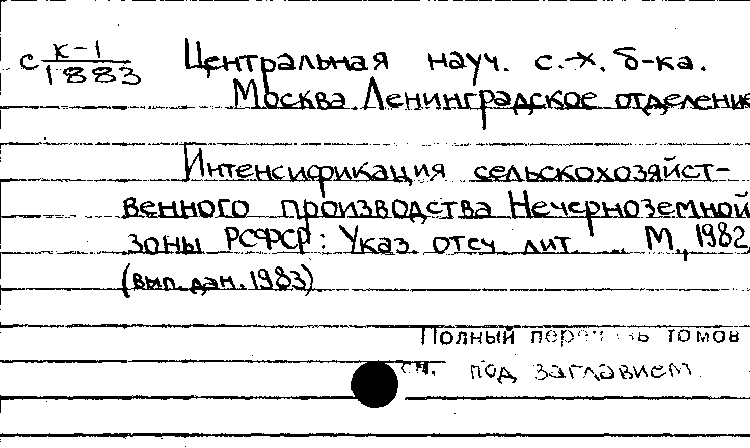 с К-1/1883 Центральная науч. с.-х. б-ка.
Москва. Ленинградское отделение
Интенсификация сельскохозяйст-
венного производства Нечерноземной
зоны РСФСР: Указ. отеч. лит. .. М., 1982
(вып. дан. 1983)
Полный перечень томов
см. под заглавием